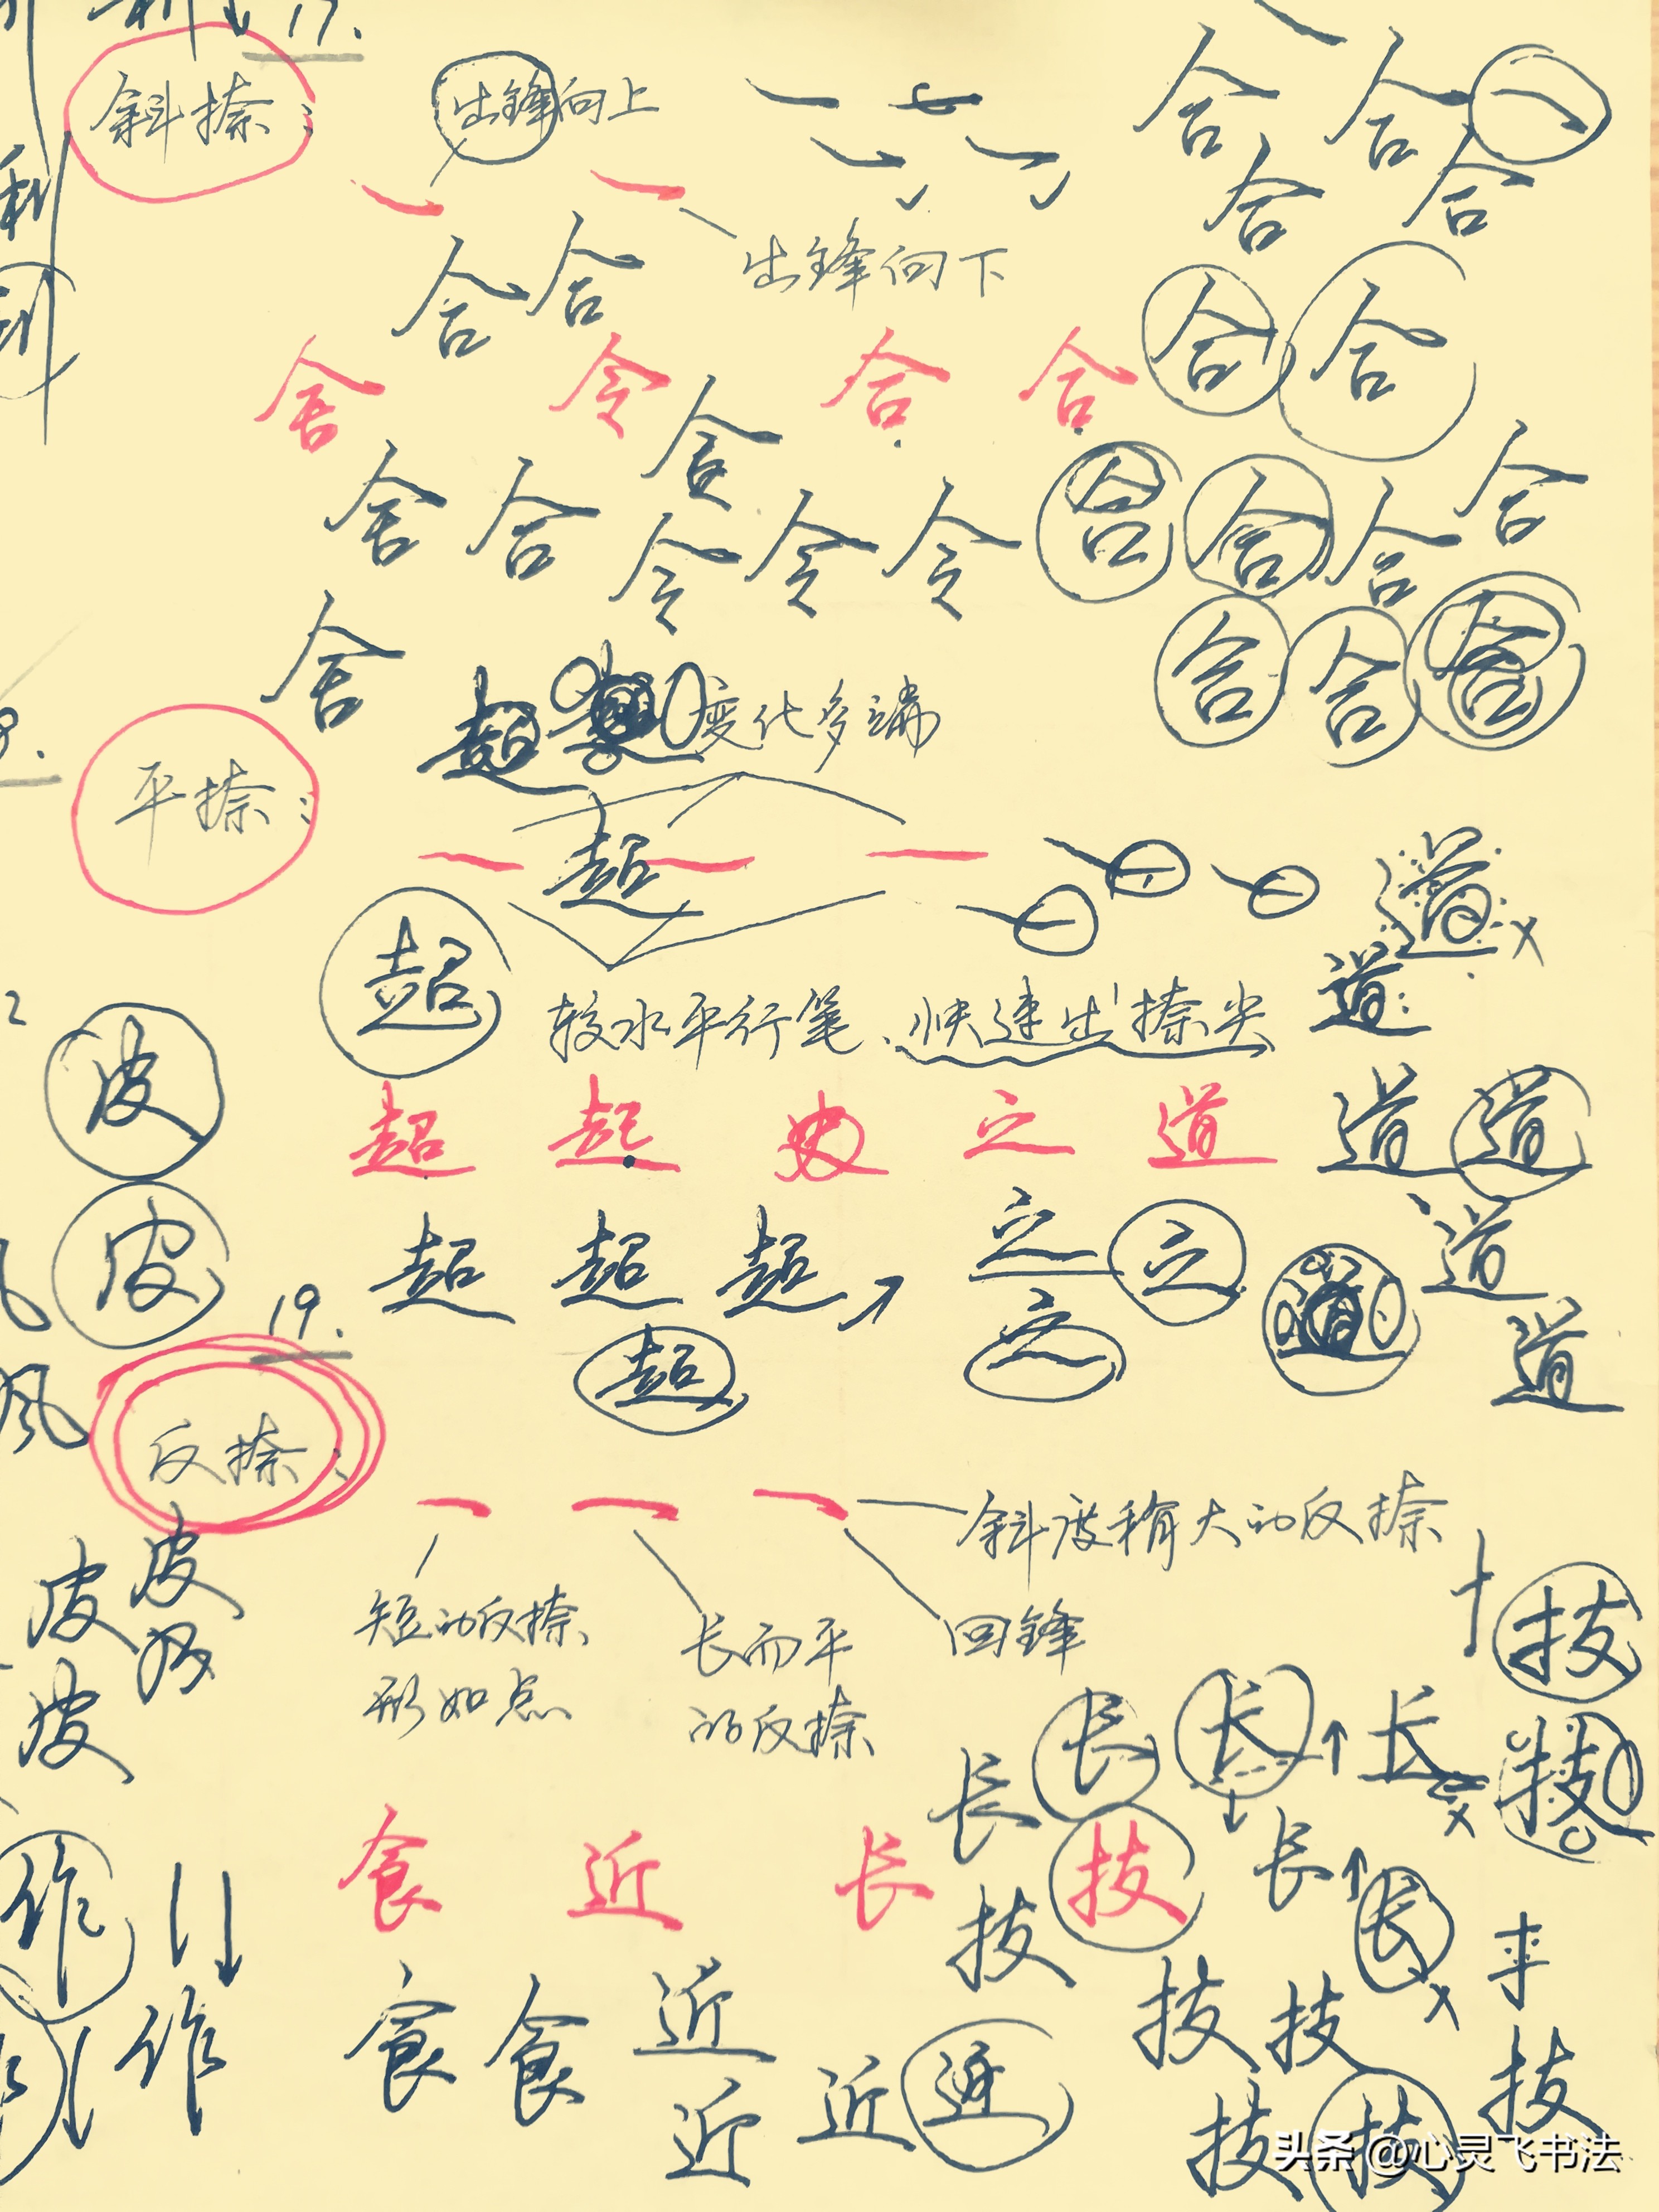 17.
斜捺：
出锋向上
出锋向下
合 合
合 合
合 合
合 合
舍 令 合 合
舍 合 舍
令 令 令
合 合 合 合
合 合 合
舍
平捺：
超 变化多端
超
超
道
道
较水平行笔、快速出捺尖
超 起 史 之 道
道 道
超 超 超
之 之
超
之
道 道
道
皮
皮
19.
风
反捺：
斜度稍大的反捺
短的反捺
形如点
长而平
的反捺
回锋
皮 皮
皮
技
技
长 长 长 长
长 长
食 近 长 技
技
作
作
食 食 近
近 近 近
技 技
技 技 技
头条 @心灵飞书法